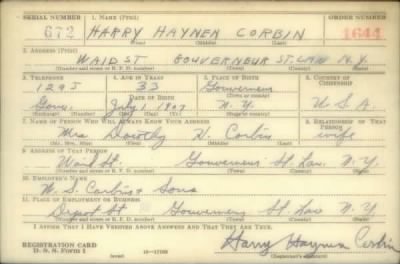 SERIAL NUMBER 1. NAME (Print) ORDER NUMBER
672 HARRY HAYNEN CORBIN 1644
(First) (Middle) (Last)
2. ADDRESS (Print)
WAID ST GOUVERNEUR ST. LAW N.Y.
(Number and street or R. F. D. number) (Town) (County) (State)
3. TELEPHONE 4. AGE IN YEARS 5. PLACE OF BIRTH 6. COUNTRY OF CITIZENSHIP
1295 33 Gouverneur
(Town or county)
DATE OF BIRTH
Gouv. July 1 1907 N.Y. U.S.A.
(Exchange) (Number) (Mo.) (Day) (Yr.) (State or country)
7. NAME OF PERSON WHO WILL ALWAYS KNOW YOUR ADDRESS 8. RELATIONSHIP OF THAT PERSON
Mrs Dorothy V. Corbin wife
(Mr., Mrs., Miss) (First) (Middle) (Last)
9. ADDRESS OF THAT PERSON
Waid St. Gouverneur St. Law. N.Y.
(Number and street or R. F. D. number) (Town) (County) (State)
10. EMPLOYER'S NAME
W. S. Corbin & Sons
11. PLACE OF EMPLOYMENT OR BUSINESS
Depot St Gouverneur St Law N.Y.
(Number and street or R. F. D. number) (Town) (County) (State)
I AFFIRM THAT I HAVE VERIFIED ABOVE ANSWERS AND THAT THEY ARE TRUE.
REGISTRATION CARD
D. S. S. Form 1 Harry Haynen Corbin
(Registrant's signature)